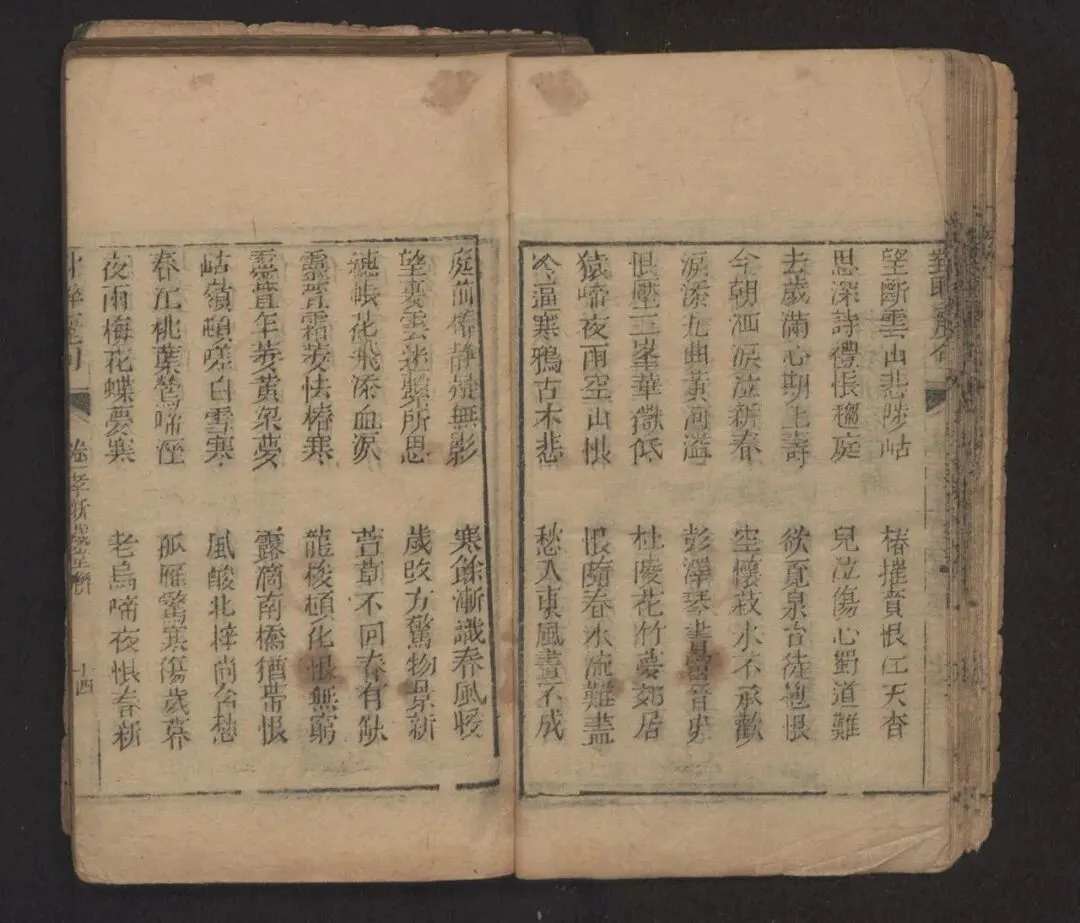 望斷雲山悲陟岵 椿摧賁恨江天杳
思深詩禮恨趨庭 兒泣傷心蜀道難
去歲滿心期上壽 欲覓泉台徒抱恨
今朝洒淚泣新春 空懷菽水不承歡
淚添九曲黃河溢 彭澤琴書
恨壓三峯華嶽低 杜陵花竹夢郊居
猿啼夜雨空山恨 恨隨春水流難盡
冷逼寒鴉古木悲 愁入東風畫不成
庭前椿靜凝無影 寒餘漸識春風暖
望裏雲迷繫所思 歲改方驚物景新
繐帳花飛添血淚 萱草不回春有缺
靈萱霜萎怯椿寒 龍梭頓化恨無窮
靈萱年萎黃粱夢 露滴南橋猶帶恨
岵嶺頻嗟白雪寒 風酸北梓尚含愁
春江桃葉鶯啼溼 孤雁驚寒傷歲暮
夜雨梅花蝶夢寒 老烏啼夜恨春新
卷二孝新歲堂聯
十四